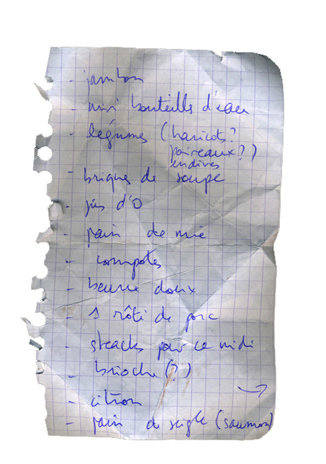 - jambon
- mini bouteilles d'eau
- légumes (haricots?
poireaux?)
endives
- briques de soupe
- jus d'O
- pain de mie
- compotes
- beurre doux
- 1 rôti de porc
- steacks pour ce midi
- brioche (?)
- citron
- pain de seigle (saumon)